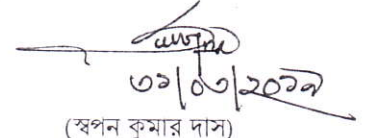 ৩১/০৩/২০১৯
(স্বপন কুমার দাস)